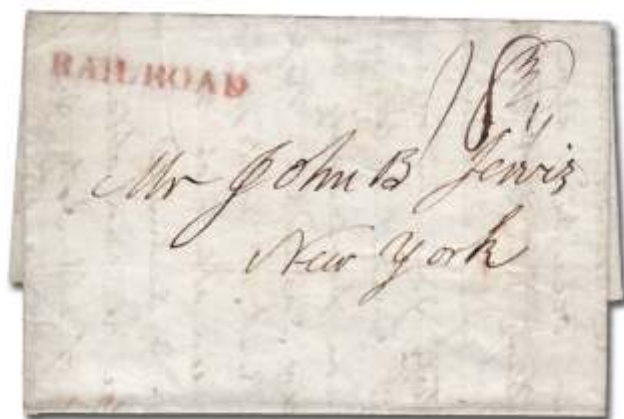 RAILROAD
18 3/4
Mr John B Jervis
New York